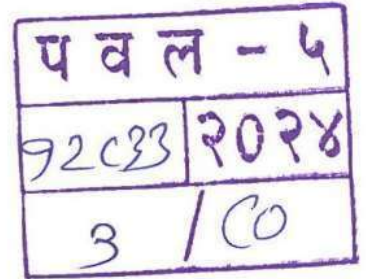 प व ल - ५
१२८३३ २०२४
३ / ८०